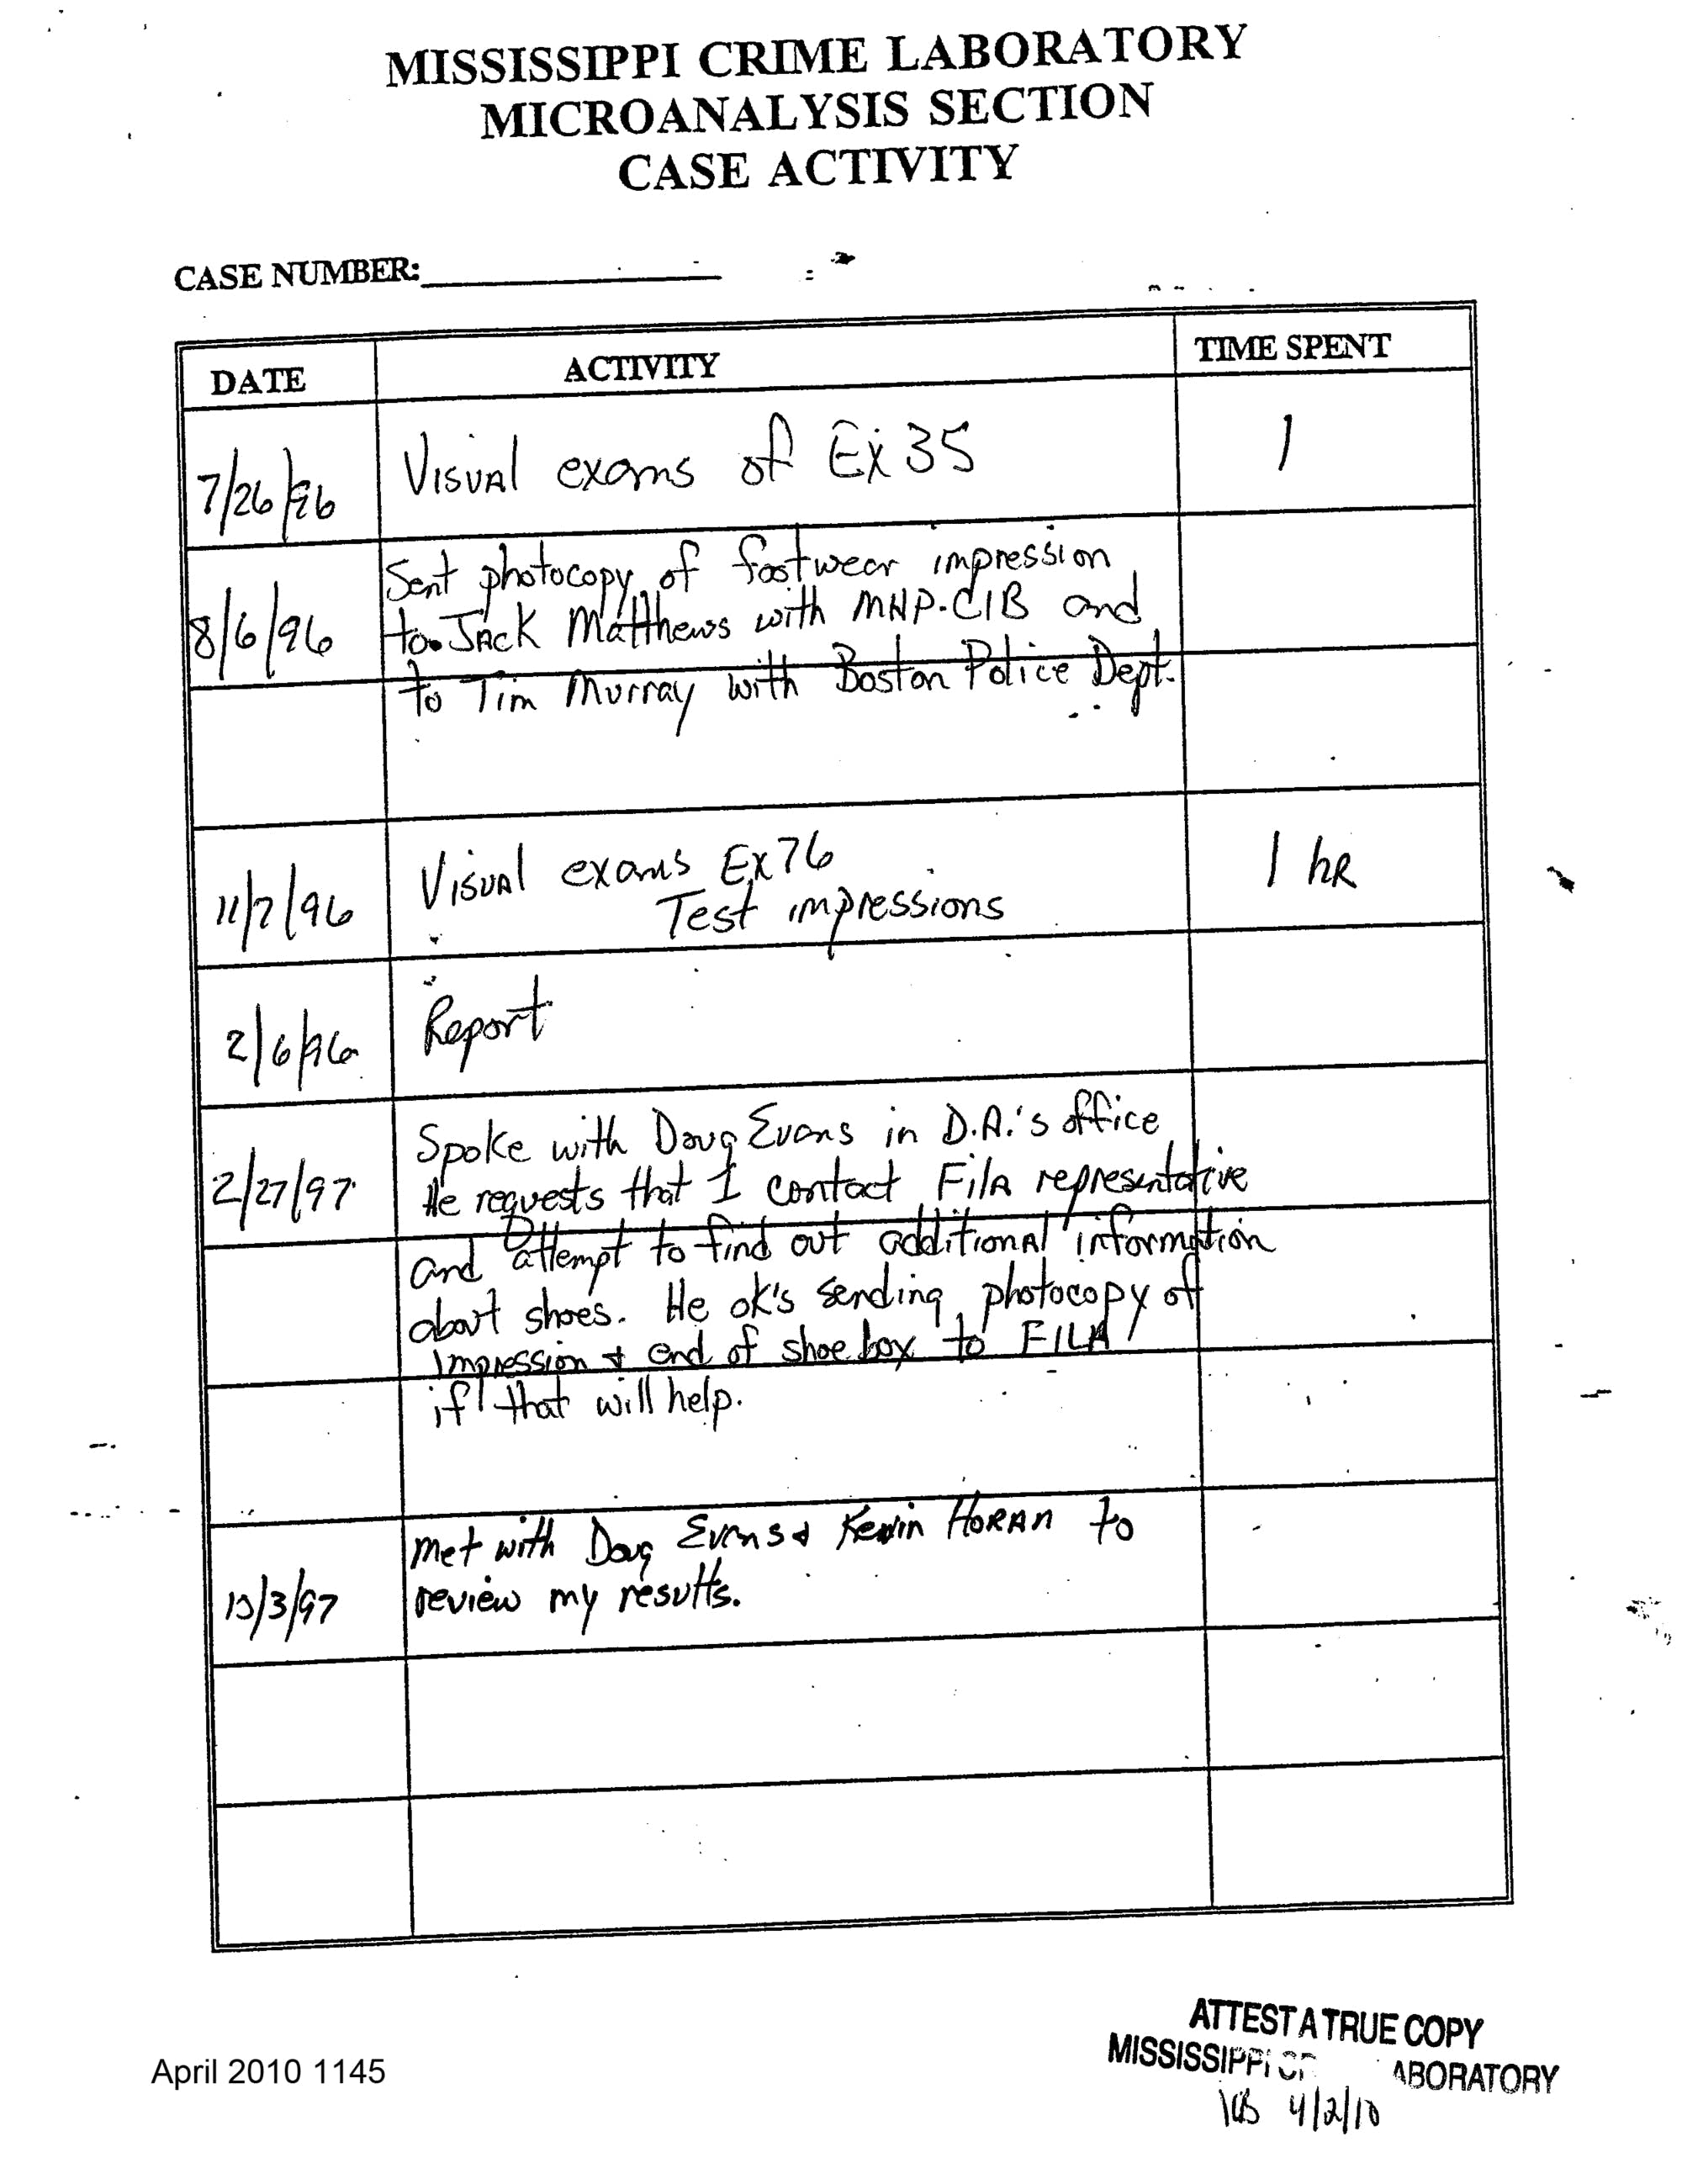 MISSISSIPPI CRIME LABORATORY
MICROANALYSIS SECTION
CASE ACTIVITY
CASE NUMBER:
DATE ACTIVITY TIME SPENT
7/26/96 Visual exams of Ex 35 1
Sent photocopy of footwear impression
8/6/96 to Jack Matthews with MHP-CIB and
to Tim Murray with Boston Police Dept.
11/7/96 Visual exams Ex 76 1 hR
Test impressions
2/6/96 Report
Spoke with Doug Evans in D.A.'s office
2/27/97 He requests that I contact Fila representative
and attempt to find out additional information
about shoes. He ok's sending photocopy of
impression & end of shoe box to FILA
if that will help.
met with Doug Evans & Kevin Horan to
/3/97 review my results.
ATTEST A TRUE COPY
MISSISSIPPI ABORATORY
4/2/10
April 2010 1145